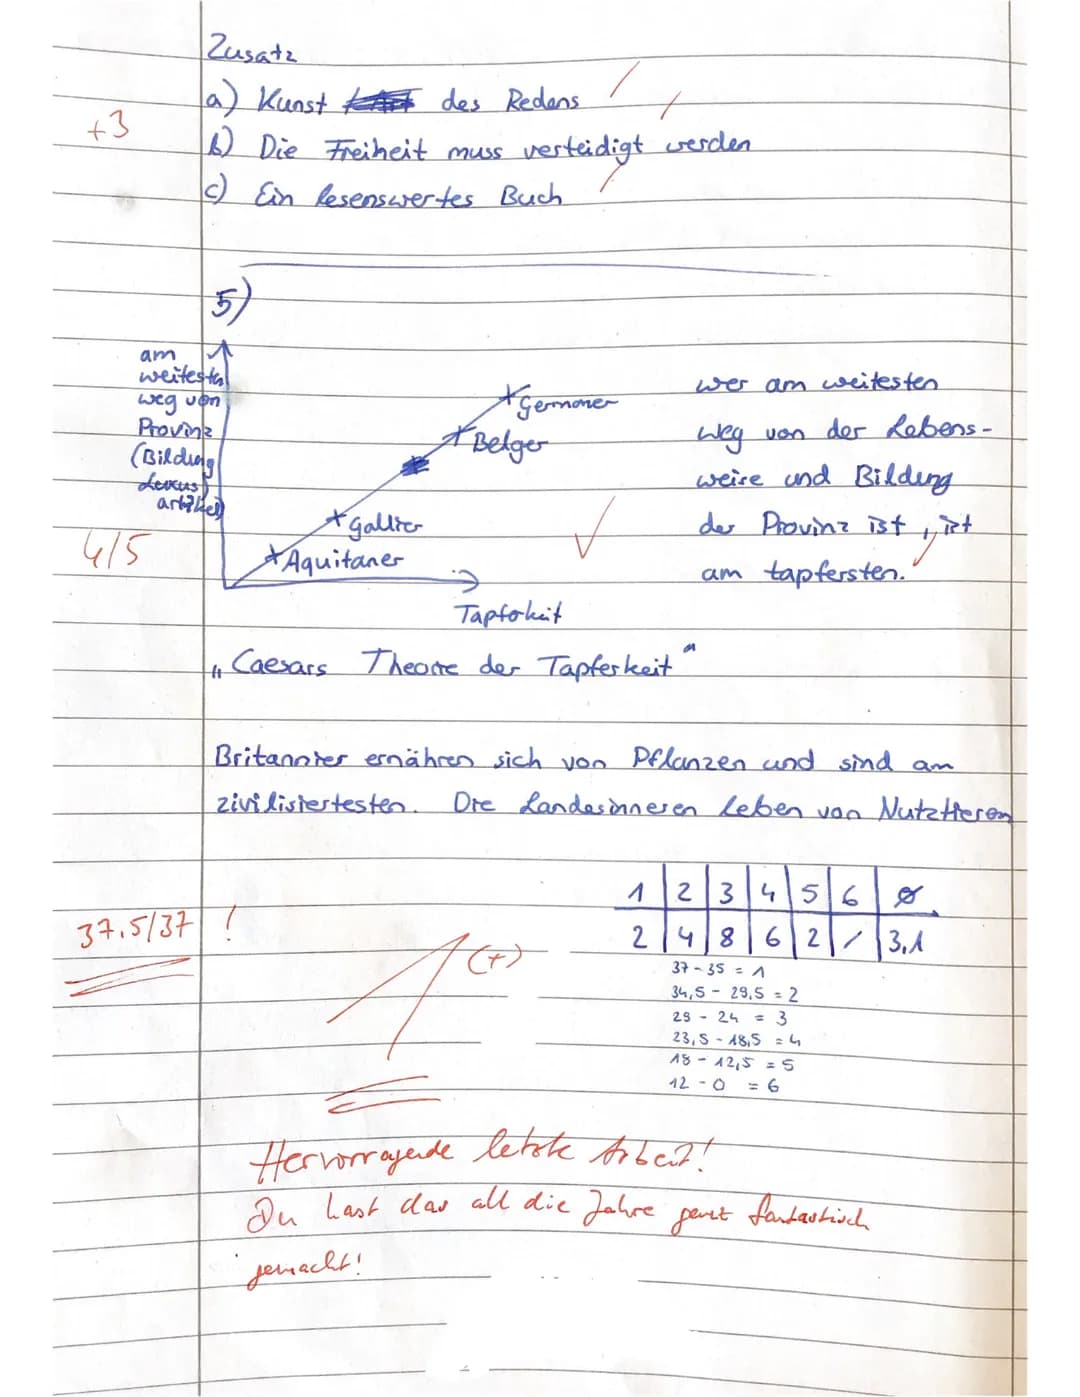 Zusatz
a) Kunst des Redens
+3
b) Die Freiheit muss verteidigt werden
c) Ein lesenswertes Buch
5)
am
weitesten
weg von
Provinz
(Bildung
Luxus)
artikel)
Germaner
Belger
Gallier
Aquitaner
Tapferkeit
4/5
wer am weitesten
weg von der Lebens-
weise und Bildung
der Provinz ist, ist
am tapfersten.
"Caesars Theorie der Tapferkeit"
Britannier ernähren sich von Pflanzen und sind am
zivilisiertesten. Die Landesinneren leben von Nutztieren
1 2 3 4 5 6 ø
2 4 8 6 2 / 3,1
37,5/37 !
1 (+)
37 - 35 = 1
34,5 - 29,5 = 2
29 - 24 = 3
23,5 - 18,5 = 4
18 - 12,5 = 5
12 - 0 = 6
Hervorragende letzte Arbeit!
Du hast das all die Jahre fantastisch
gemacht!